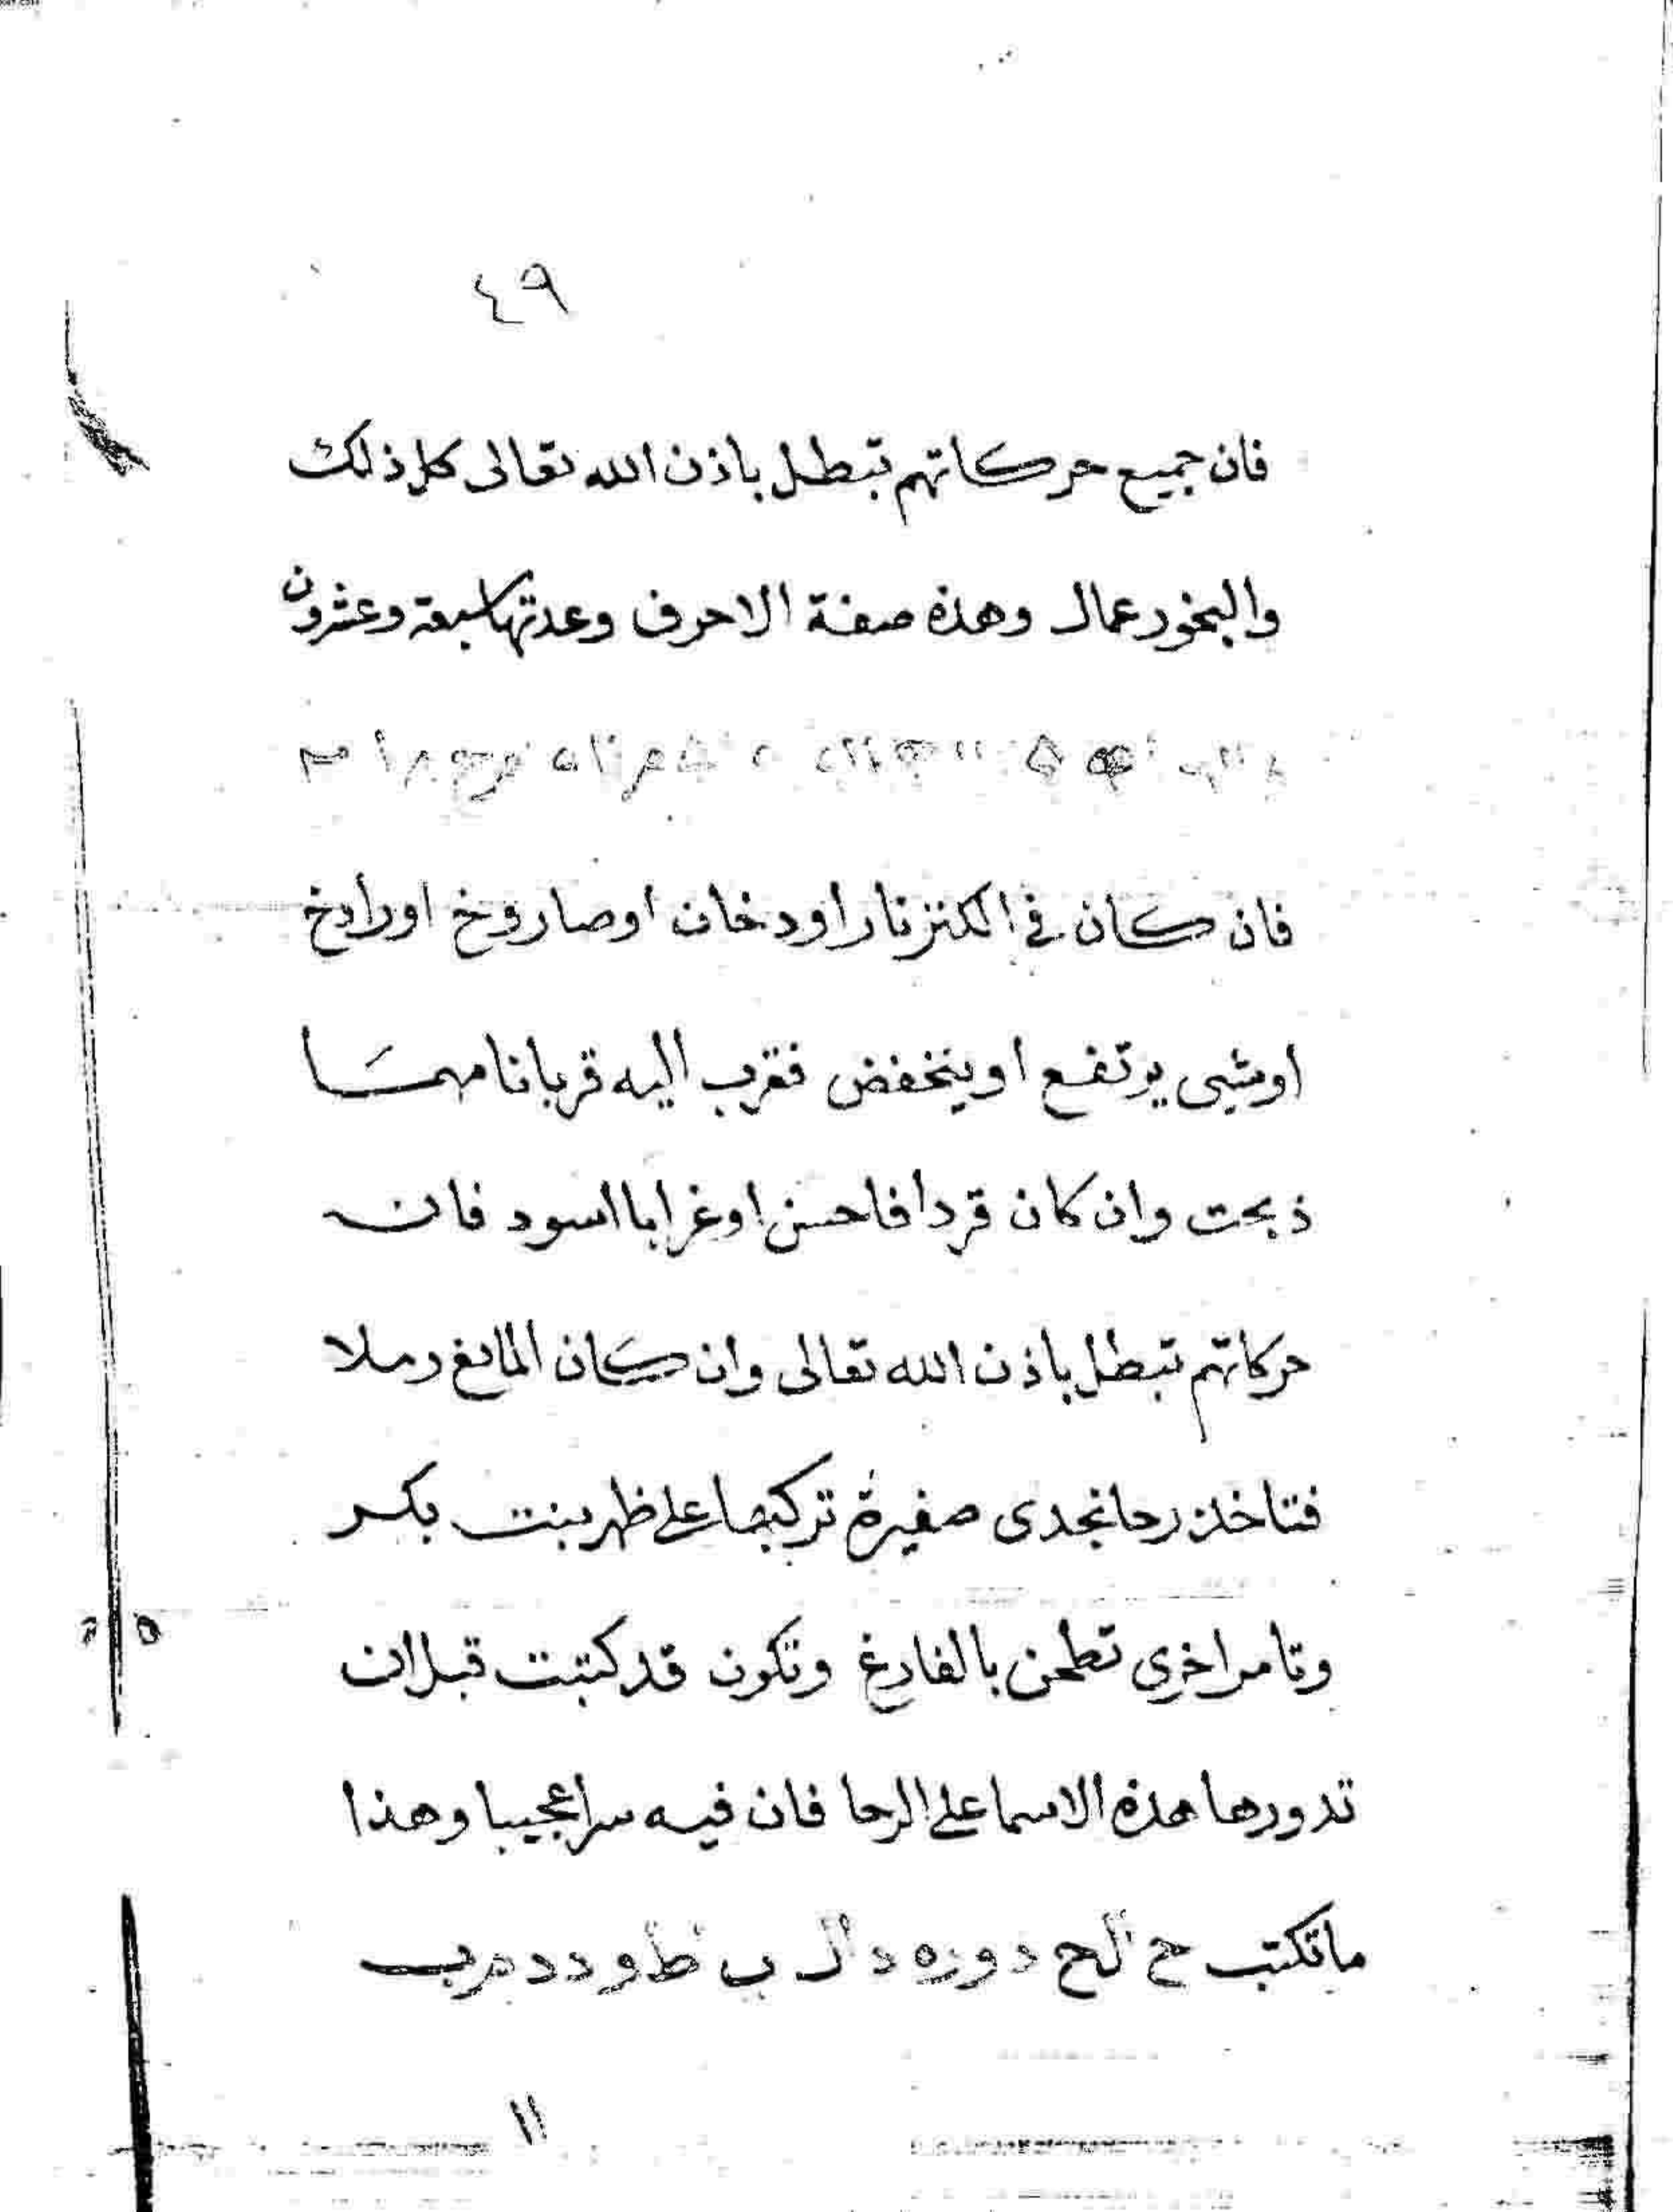 ٤٩
فان جميع حركاتهم تبطل باذن الله تعالى كل ذلك
والبخور عمال وهذه صفة الاحرف وعدتها سبعة وعشرون
فان كان في الكنز نار او دخان او صاروخ او رادخ
او شيى يرتفع او ينخفض فقرب اليه قربانا مهمسا
ذبحت وان كان قردا فاحسن او غرابا اسود فان
حركاتهم تبطل باذن الله تعالى وان كان المانع رملا
فتاخذ رحا نجدى صغيرة تركبها على ظهر بنت بكر
وتامر اخرى تطحن بالفارغ وتكون قد كتبت قبل ان
تدورها هذه الاسما على الرحا فان فيه سرا عجيبا وهذا
ما تكتب ح
١١